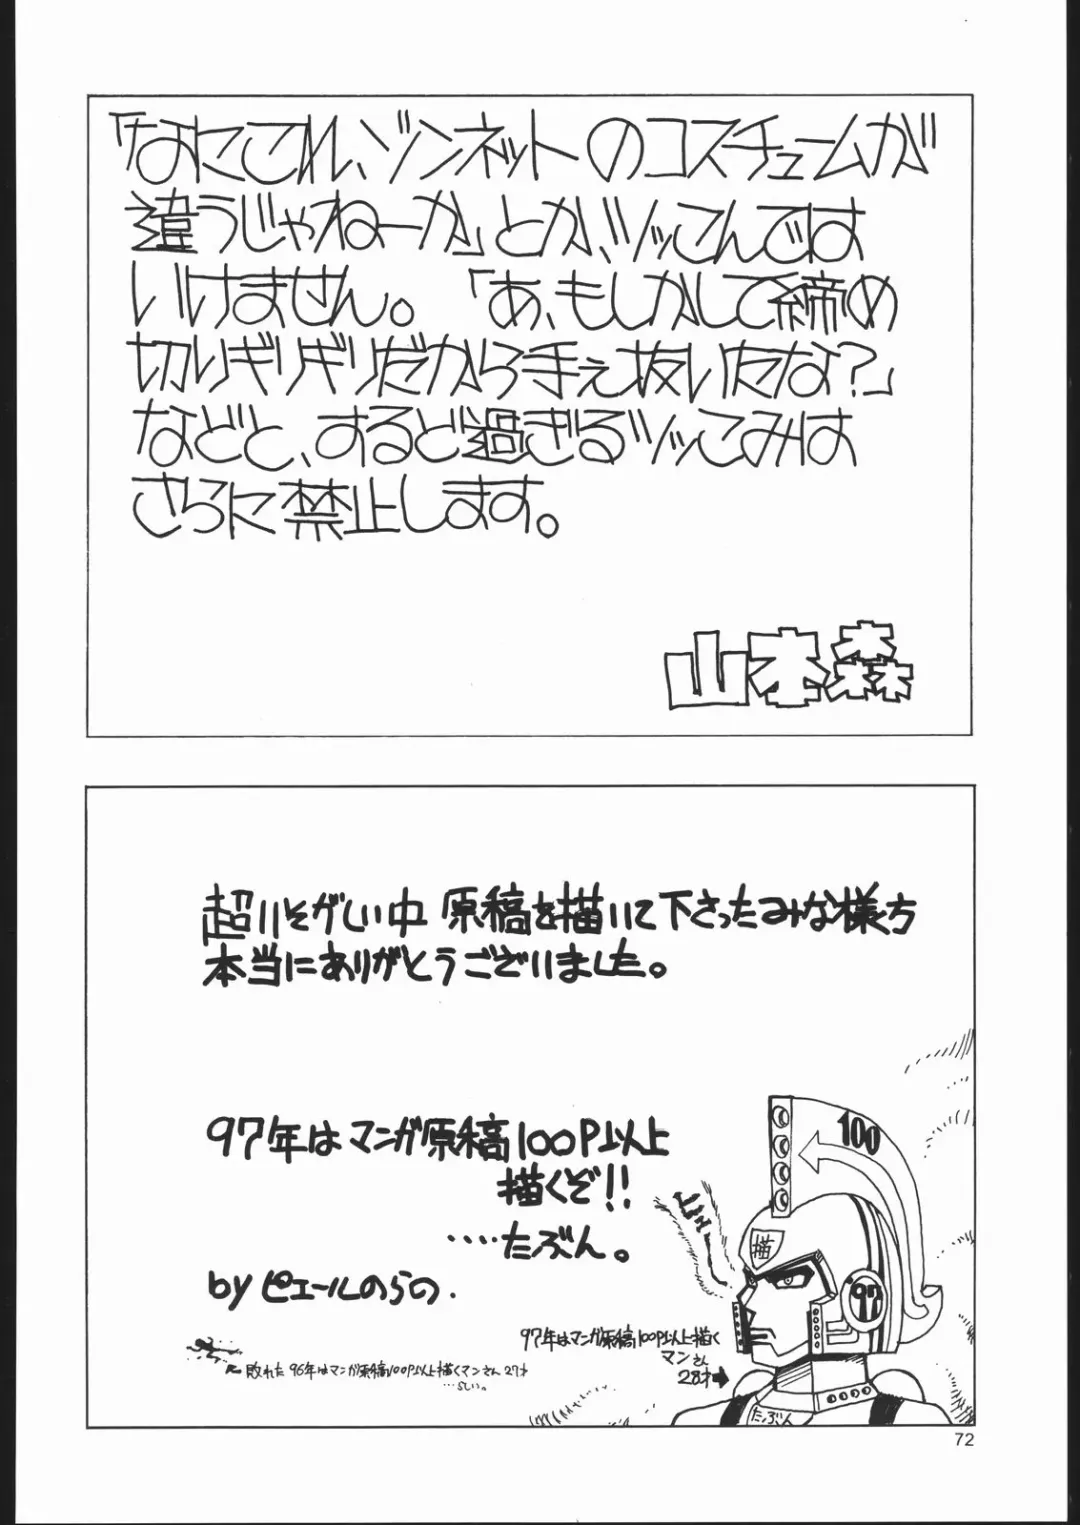 「なにこれ、ゾンネットのコスチュームが
違うじゃねーか」とか、ツッこんでは
いけません。「あ、もしかして締め
切りギリギリだから手え抜いたな?」
などと、するど過ぎるツッこみは
さらに禁止します。
山本森
超いそがしい中 原稿を描いて下さったみな様方
本当にありがとうございました。
97年はマンガ原稿100P以上
描くぞ!!
‥‥たぶん。
by ピエールのらの.
100
描
97
97年はマンガ原稿100P以上描く
マンさん
28才➡
敗れた 96年はマンガ原稿100P以上描くマンさん 27才
…らしい。
たぶん
72